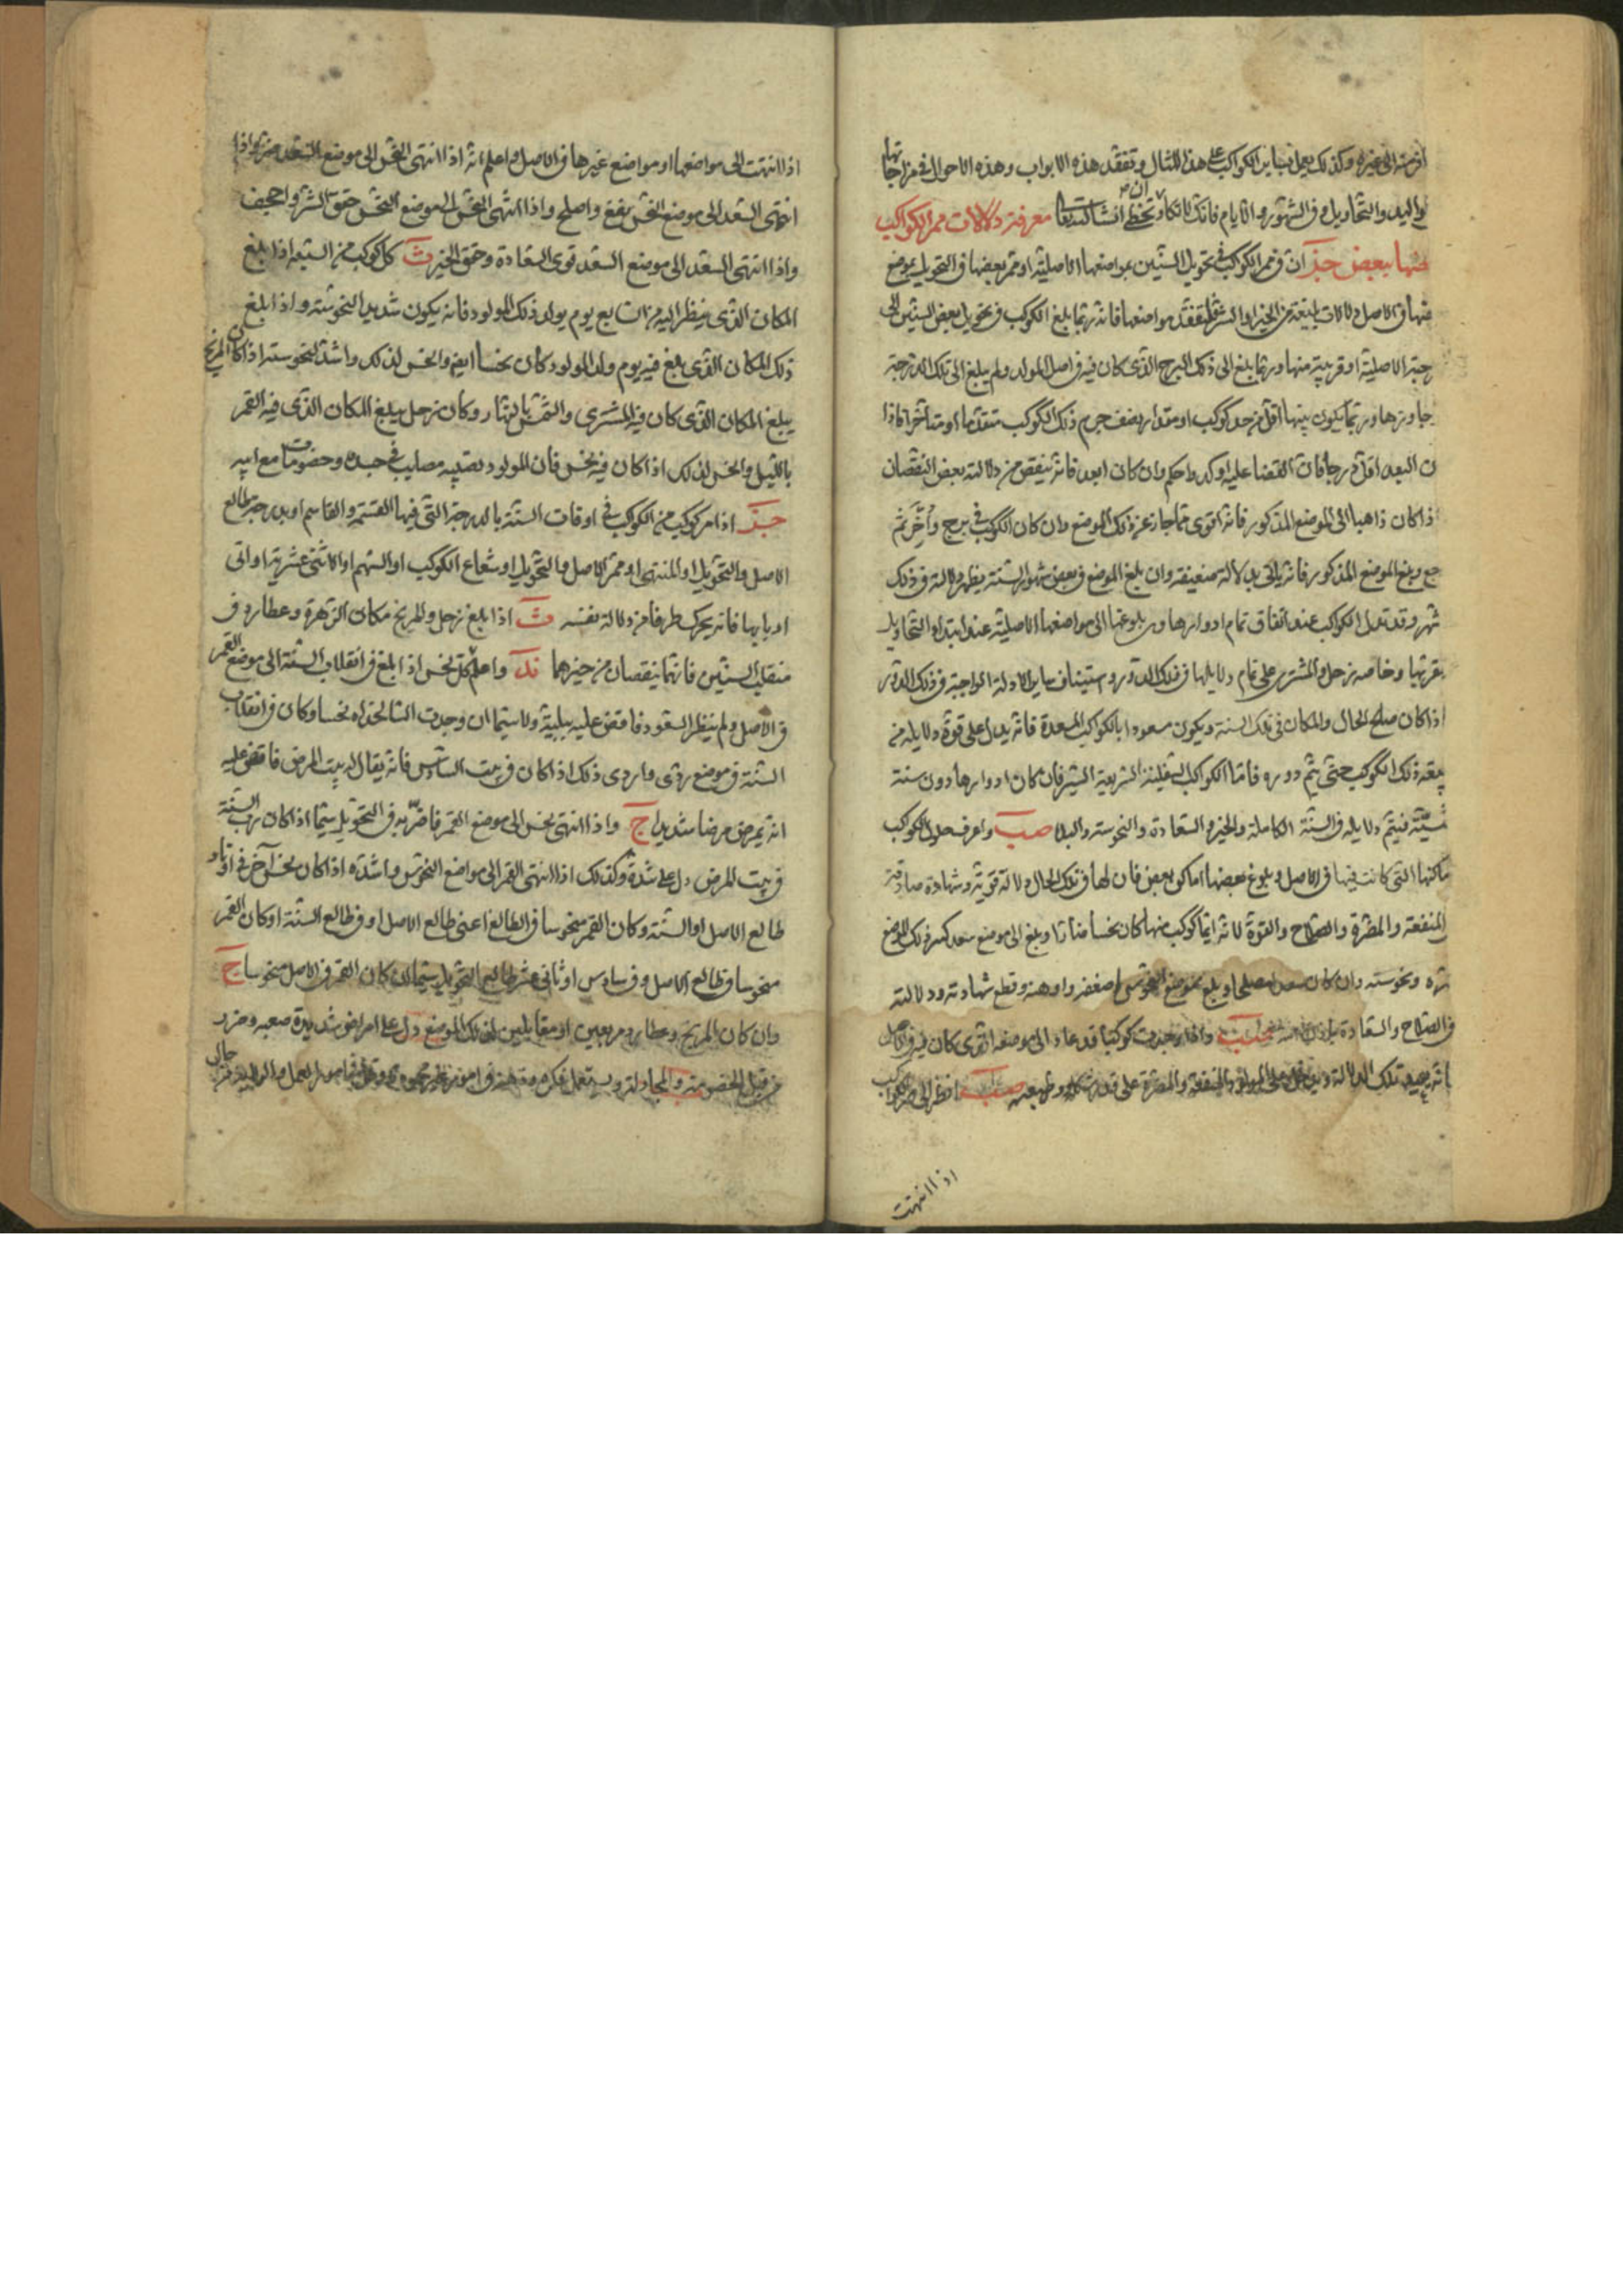 ازمنة الى غيره وكذلك يعمل بساير الكواكب على هذا المثال ويتفقد هذه الابواب وهذه الاحوال في مزاجاتها
والتحاويل وفي الشهور والايام فانك لا تكاد ان تخطئ انشا الله تعالى معرفة دلالات ممر الكواكب
بعضها ببعض ان في ممر الكواكب في تحويل السنين بمواضعها الاصلية او ممر بعضها في التحويل بموضع
بعضها في الاصل دلالات بليغة من الخير او الشر فليتفقد مواضعها فانه ربما بلغ الكوكب في تحويل بعض السنين الى
درجته الاصلية او قريبة منها وربما بلغ الى ذلك البرج الذي كان فيه في اصل المولد ولم يبلغ الى تلك الدرجة
جاوزها وربما يكون بينهما اقل من حد كوكب او مقدار نصف جرم ذلك الكوكب متقدما او متأخرا فاذا
كان البعد اقل درجا فان القضا عليه اوكد واحكم وان كان ابعد فانه ينقص من دلالته بعض النقصان
اذا كان ذاهبا الى الموضع المذكور فانه اقوى مما جاز عن ذلك الموضع وان كان الكوكب في برج واخر ثم
رجع وبلغ الموضع المذكور فانه ياتي بدلالة ضعيفة وان بلغ الموضع في بعض شهور السنة يظهر دلالته في ذلك
الشهر وقد تدل الكواكب عند اتفاق تمام ادوارها وبلوغها الى مواضعها الاصلية عند ابتداء التحاويل
بقربها وخاصه زحل والمشتري على تمام دلايلها في ذلك الدور واستيناف ساير الادلة الواجبة في ذلك الدور
اذا كان صالح الحال والمكان في تلك السنة ويكون مسعودا بالكواكب المسعدة فانه يدل على قوة دلايله من
ذلك الكوكب حتى يتم دوره فاما الكواكب السفلية السريعة السير فان كان ادوارها دون سنة
فيتم دلايله في السنة الكاملة والخير والسعادة والنحوسة والبلا واعرف حلول الكواكب
اماكنها التي كانت فيها في الاصل وبلوغ بعضها اماكن بعض فان لها في تلك الحال دلالة قوية وشهادة صادقة
المنفعة والمضرة والصلاح والقوة لانه ايما كوكب منها كان نحسا ضارا وبلغ الى موضع سعد كسر ذلك الموضع
شره ونحوسته وان كان سعدا مصلحا وبلغ موضع النحوس اضعفه واوهنه وقطع شهادته ودلالته
في الصلاح والسعادة واذا وجدت كوكبا قد عاد الى موضعه الذي كان فيه في الاصل
فانه يعيد تلك الدلالة على المولود بالمنفعة والمضرة على قدر شكله وطبيعته انظر الى الكواكب
اذا انتهت
اذا انتهت الى مواضعها او مواضع غيرها في الاصل واعلم انه اذا انتهى النحس الى موضع السعد ضره واذا
انتهى السعد الى موضع النحس نفع واصلح واذا انتهى النحس الى موضع النحس حقق الشر واجحف
واذا انتهى السعد الى موضع السعد قوى السعادة وحقق الخير كل كوكب من السبعه اذا بلغ
المكان الذي ينظر اليه من السابع يوم يولد ذلك المولود فانه يكون شديد النحوسة واذا بلغ
ذلك المكان الذي بلغ فيه يوم ولد المولود كان نحسا ايضا وانحس لذلك واشد لنحوسته اذا كان المريخ
يبلغ المكان الذي كان فيه المشترى والشمس بالنهار وكان زحل يبلغ المكان الذي فيه القمر
بالليل وانحس لذلك اذا كان فيه نحس فان المولود تصيبه مصايب في جسده وخصومات مع ابيه
اذا مر كوكب من الكواكب في اوقات السنة بالدرجة التي فيها القسمة والقاسم او بدرجة طالع
الاصل والتحويل او المنتهى او ممر الاصل والتحويل او شعاع الكوكب او السهم او الاثنى عشرية او اتى
اربابها فانه يحرك طرفا من دلالة نفسه اذا بلغ زحل والمريخ مكان الزهرة وعطارد في
منقلب السنين فانهما ينقصان من خيرهما واعلم كل نحس اذا بلغ في انقلاب السنة الى موضع القمر
في الاصل ولم ينظر السعود فاقض عليه ببلية ولا سيما ان وجدت نحسا وكان في انقلاب
السنة في موضع ردى واردى ذلك اذا كان في بيت السادس فانه يقال له بيت المرض فاقض عليه
انه يمرض مرضا شديدا واذا انتهى نحس الى موضع القمر فاضر به في التحويل سيما اذا كان رب السنة
في بيت المرض دل على شدة وكذلك اذا انتهى القمر الى مواضع النحوس واشده اذا كان نحس آخر في اوتاد
طالع الاصل او السنة وكان القمر منحوسا في الطالع اعنى طالع الاصل او في طالع السنة او كان القمر
منحوسا في طالع الاصل وفي سادس او ثاني عشر طالع التحويل سيما ان كان القمر في الاصل منحوسا
وان كان المريخ وعطارد مربعين او مقابلين لذلك الموضع دل على امراض شديدة صعبه وضرر
من قبل الخصومة والمجادلة ويستعمل فكره في امور غير